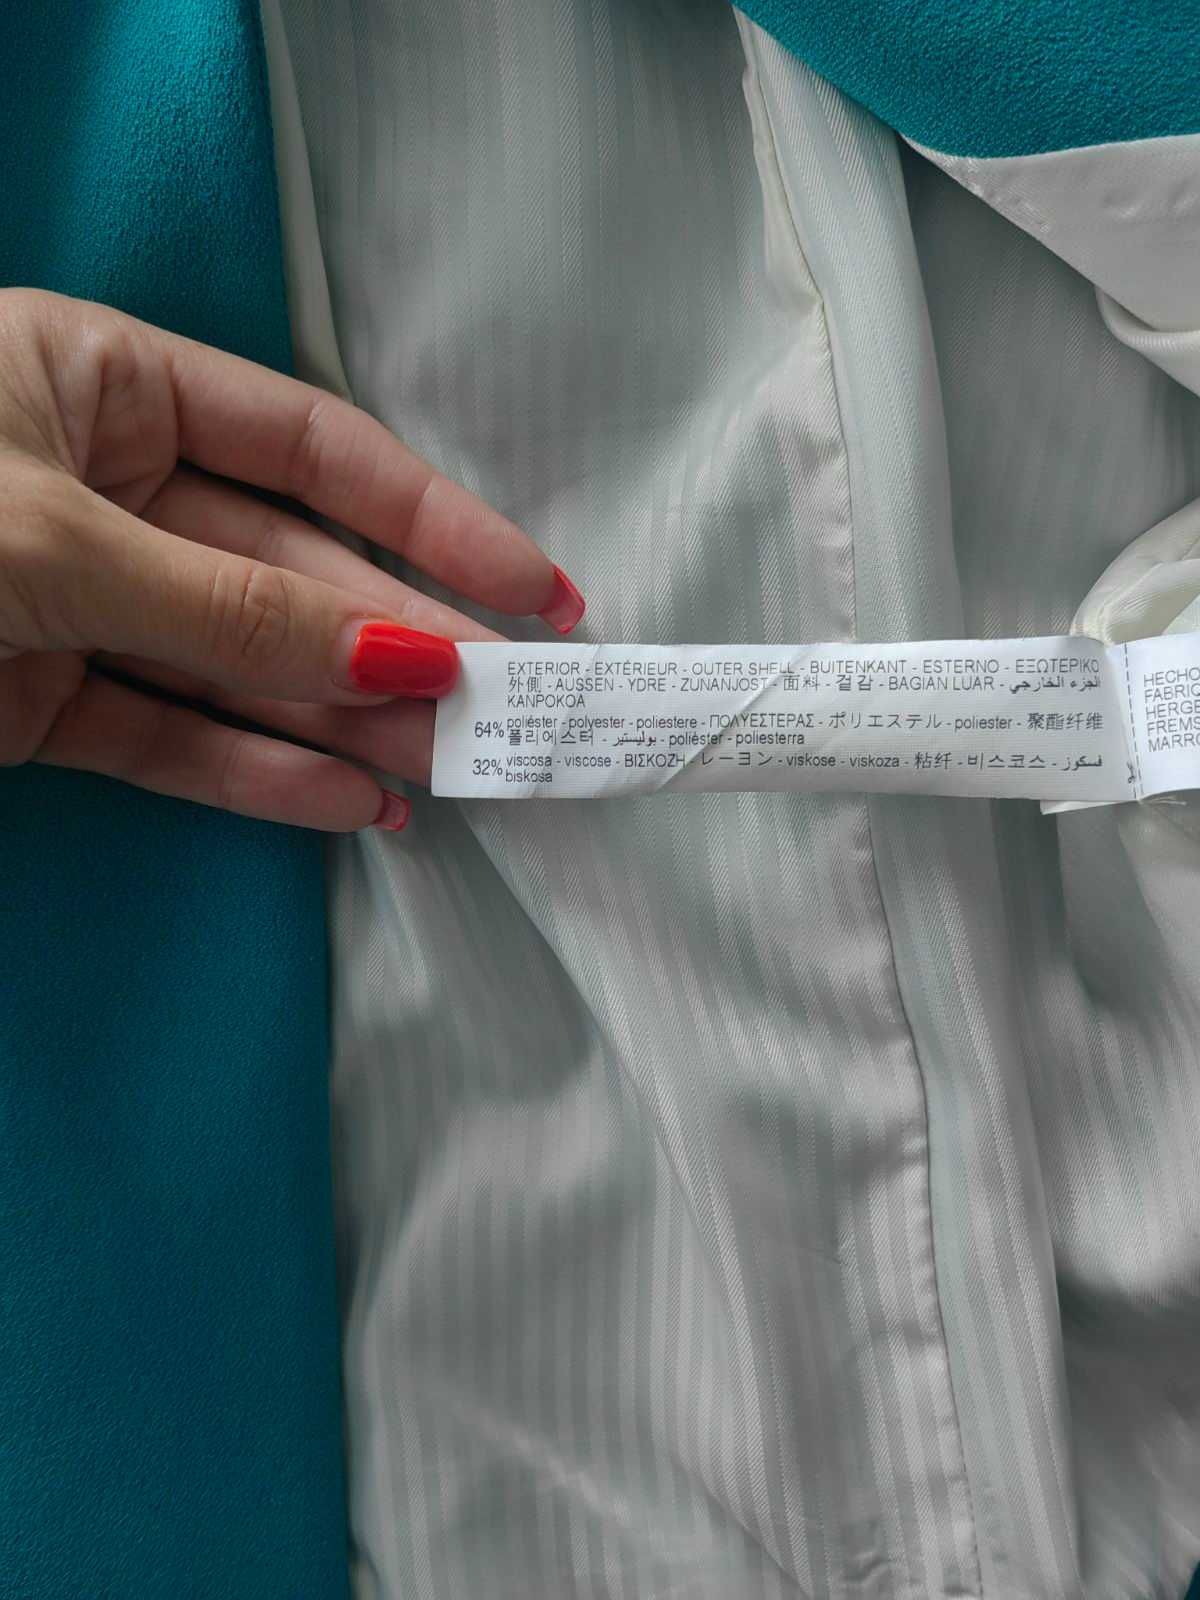 EXTERIOR - EXTÉRIEUR - OUTER SHELL - BUITENKANT - ESTERNO - ΕΞΩΤΕΡΙΚΟ
外側 - AUSSEN - YDRE - ZUNANJOST - 面料 - 겉감 - BAGIAN LUAR - الجزء الخارجي
KANPOKOA
64% poliéster - polyester - poliestere - ΠΟΛΥΕΣΤΕΡΑΣ - ポリエステル - poliester - 聚酯纤维
폴리에스터 - بوليستير - poliéster - poliesterra
32% viscosa - viscose - ΒΙΣΚΟΖΗ - レーヨン - viskose - viskoza - 粘纤 - 비스코스 - فسكوز
biskosa
HECHO
FABRIC
HERGE
FREMS
MARRO